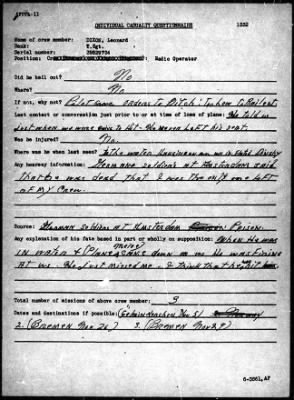 INDIVIDUAL CASUALTY QUESTIONNAIRE 1332
Name of crew member: DIXON, Leonard
Rank: T.Sgt.
Serial number:
Position: Radio Operator
Did he bail out? No
Where? No
If so, why not? Pilot gave orders to Ditch
Last contact or conversation just prior to or at time of loss of plane: He told us
just when we were to hit. He never left his seat.
Was he injured? No.
Where was he last seen? In the water
Any hearsay information: German soldiers at Amsterdam said
that he was dead that I was the only one left
of my Crew.
Source: German soldiers at Amsterdam Prison.
Any explanation of his fate based in part or wholly on supposition: When He was
in water & Plane came down on me He was firing
at us. He just missed me. I think that he hit him.
Total number of missions of above crew member: 3
Dates and destinations if possible:
2. (Bremen Nov 26) 3. (Bremen Nov 29)
6-3861,AF